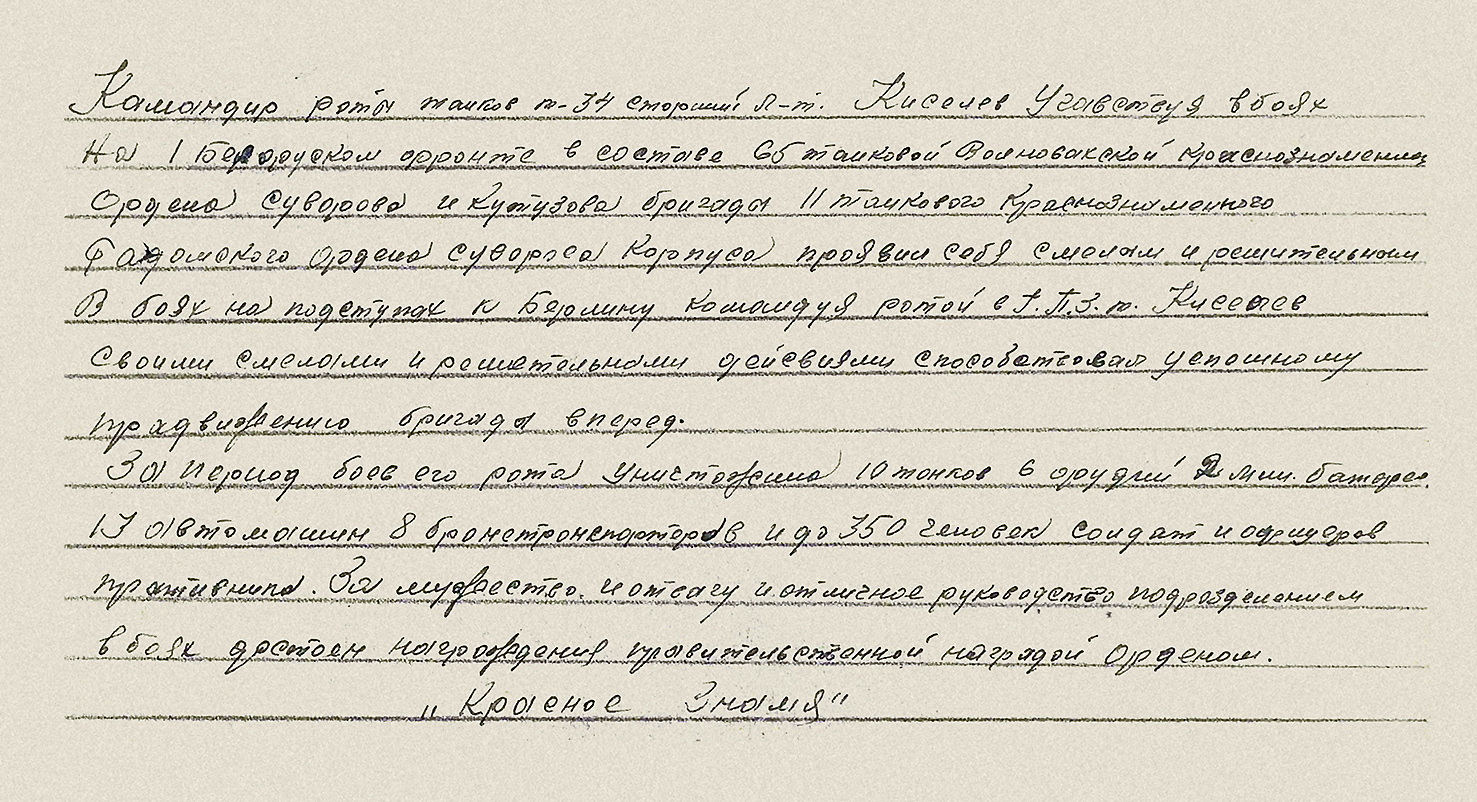 Командир роты танков т-34 старший л-т. Киселев Учавствуя в боях
На 1 Белоруском фронте в составе 65 танковой Волновакской Краснознаменной
Ордена Суворова и Кутузова бригады 11 танкового Краснознаменного
Радомского Ордена Суворова Корпуса проявил себя смелым и решительным
В боях на подступах к Берлину командуя ротой в Г.П.З. т. Киселев
своими смелыми и решательными дейсвиями способствовал успошному
прадвижению бригады вперед.
За период боев его рота уничтожила 10 танков 6 орудий 2 мин. батареи.
13 автомашин 8 бронетронспорторов и до 350 человек солдат и офицеров
пративника. За мужество. и отвагу и отличное руководство подрозделением
в боях достоен награждения правительственной наградой Орденом.
„Красное Знамя"